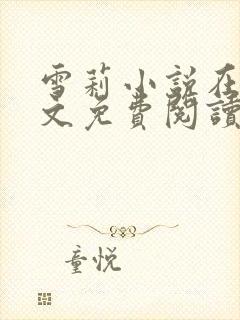 雪莉小说在
文免費閱讀
童悦